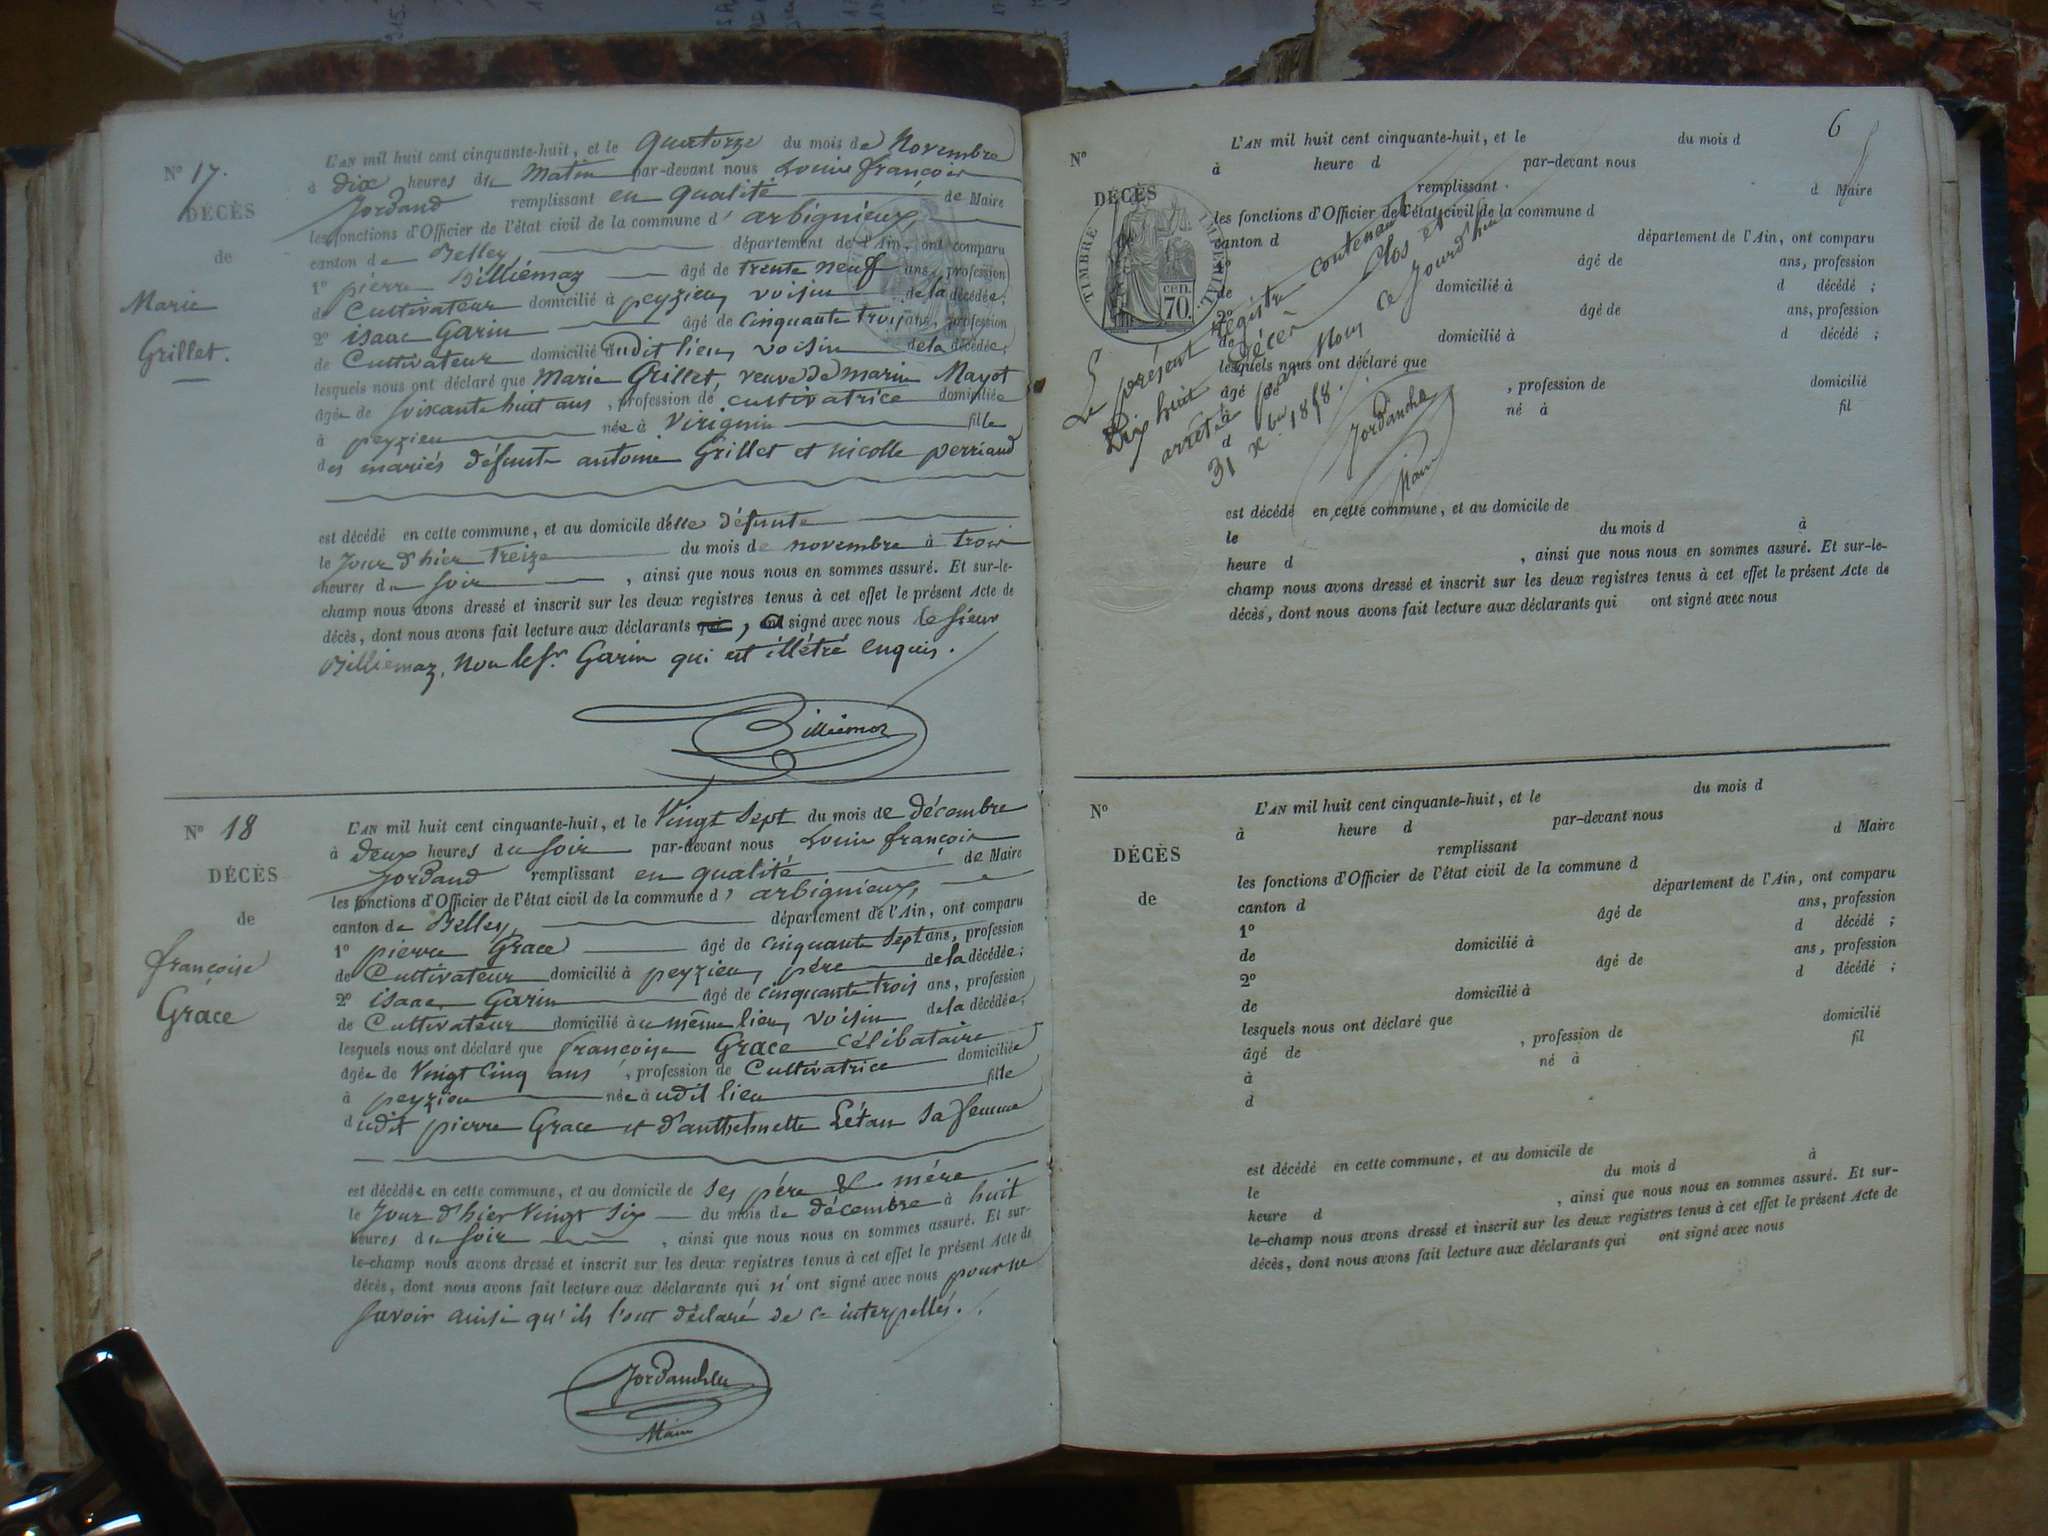 N° 17.
DÉCÈS
de
Marie
Grillet.
L'AN mil huit cent cinquante-huit, et le quatorze du mois de Novembre
à dix heures du matin par-devant nous Louis françois
Jordand remplissant en qualité de Maire
les fonctions d'Officier de l'état civil de la commune d'arbignieux,
canton de Belley, département de l'Ain, ont comparu
1° pierre Billiémaz âgé de trente neuf ans, profession
de Cultivateur domicilié à peyzieu, voisin de la décédée;
2° isaac Garin âgé de cinquante trois ans, profession
de Cultivateur domicilié audit lieu, voisin de la décédée;
lesquels nous ont déclaré que Marie Grillet, veuve de marin Mayot
âgée de soixante huit ans, profession de cultivatrice domiciliée
à peyzieu née à Virignin fille
des mariés défunts antoine Grillet et nicolle perriand
est décédé en cette commune, et au domicile d'elle défunte
le Jour d'hier treize du mois de novembre à trois
heures du soir, ainsi que nous nous en sommes assuré. Et sur-le-
champ nous avons dressé et inscrit sur les deux registres tenus à cet effet le présent Acte de
décès, dont nous avons fait lecture aux déclarants qui, a signé avec nous le sieur
Billiemaz, non le sr. Garin qui est illétré enquis.
Billiemaz
N° 18
DÉCÈS
de
françoise
Grace
L'AN mil huit cent cinquante-huit, et le Vingt Sept du mois de décembre
à deux heures du soir par-devant nous Louis françois
Jordand remplissant en qualité de Maire
les fonctions d'Officier de l'état civil de la commune d'arbignieux,
canton de Belley, département de l'Ain, ont comparu
1° pierre Grace âgé de cinquante sept ans, profession
de Cultivateur domicilié à peyzieu, père de la décédée;
2° isaac Garin âgé de cinquante trois ans, profession
de Cultivateur domicilié au même lieu, voisin de la décédée;
lesquels nous ont déclaré que françoise Grace célibataire
âgée de vingt cinq ans, profession de Cultivatrice domiciliée
à peyzieu née audit lieu fille
dudit pierre Grace et d'anthelmette Létan sa femme
est décédée en cette commune, et au domicile de ses père & mère
le Jour d'hier Vingt Six du mois de décembre à huit
heures du soir, ainsi que nous nous en sommes assuré. Et sur-
le-champ nous avons dressé et inscrit sur les deux registres tenus à cet effet le présent Acte de
décès, dont nous avons fait lecture aux déclarants qui n'ont signé avec nous pour ne
savoir ainsi qu'ils l'ont déclaré de ce interpellés.
Maire
6
N°
DÉCÈS
TIMBRE IMPÉRIAL
70 CEN.
L'AN mil huit cent cinquante-huit, et le du mois d
à heure d par-devant nous
remplissant d Maire
les fonctions d'Officier de l'état civil de la commune d
canton d département de l'Ain, ont comparu
1° âgé de ans, profession
de domicilié à d décédé ;
2° âgé de ans, profession
de domicilié à d décédé ;
lesquels nous ont déclaré que
âgé de , profession de domicilié
à né à fil
d
Le présent registre contenant
Dix huit décès Clos et
arrêté par Nous ce Jourd'hui
31 Xbre 1858.
Maire
est décédé en cette commune, et au domicile de
le du mois d à
heure d , ainsi que nous nous en sommes assuré. Et sur-le-
champ nous avons dressé et inscrit sur les deux registres tenus à cet effet le présent Acte de
décès, dont nous avons fait lecture aux déclarants qui ont signé avec nous
N°
DÉCÈS
de
L'AN mil huit cent cinquante-huit, et le du mois d
à heure d par-devant nous
remplissant d Maire
les fonctions d'Officier de l'état civil de la commune d
canton d département de l'Ain, ont comparu
1° âgé de ans, profession
de domicilié à d décédé ;
2° âgé de ans, profession
de domicilié à d décédé ;
lesquels nous ont déclaré que
âgé de , profession de domicilié
à né à fil
d
est décédé en cette commune, et au domicile de
le du mois d à
heure d , ainsi que nous nous en sommes assuré. Et sur-
le-champ nous avons dressé et inscrit sur les deux registres tenus à cet effet le présent Acte de
décès, dont nous avons fait lecture aux déclarants qui ont signé avec nous